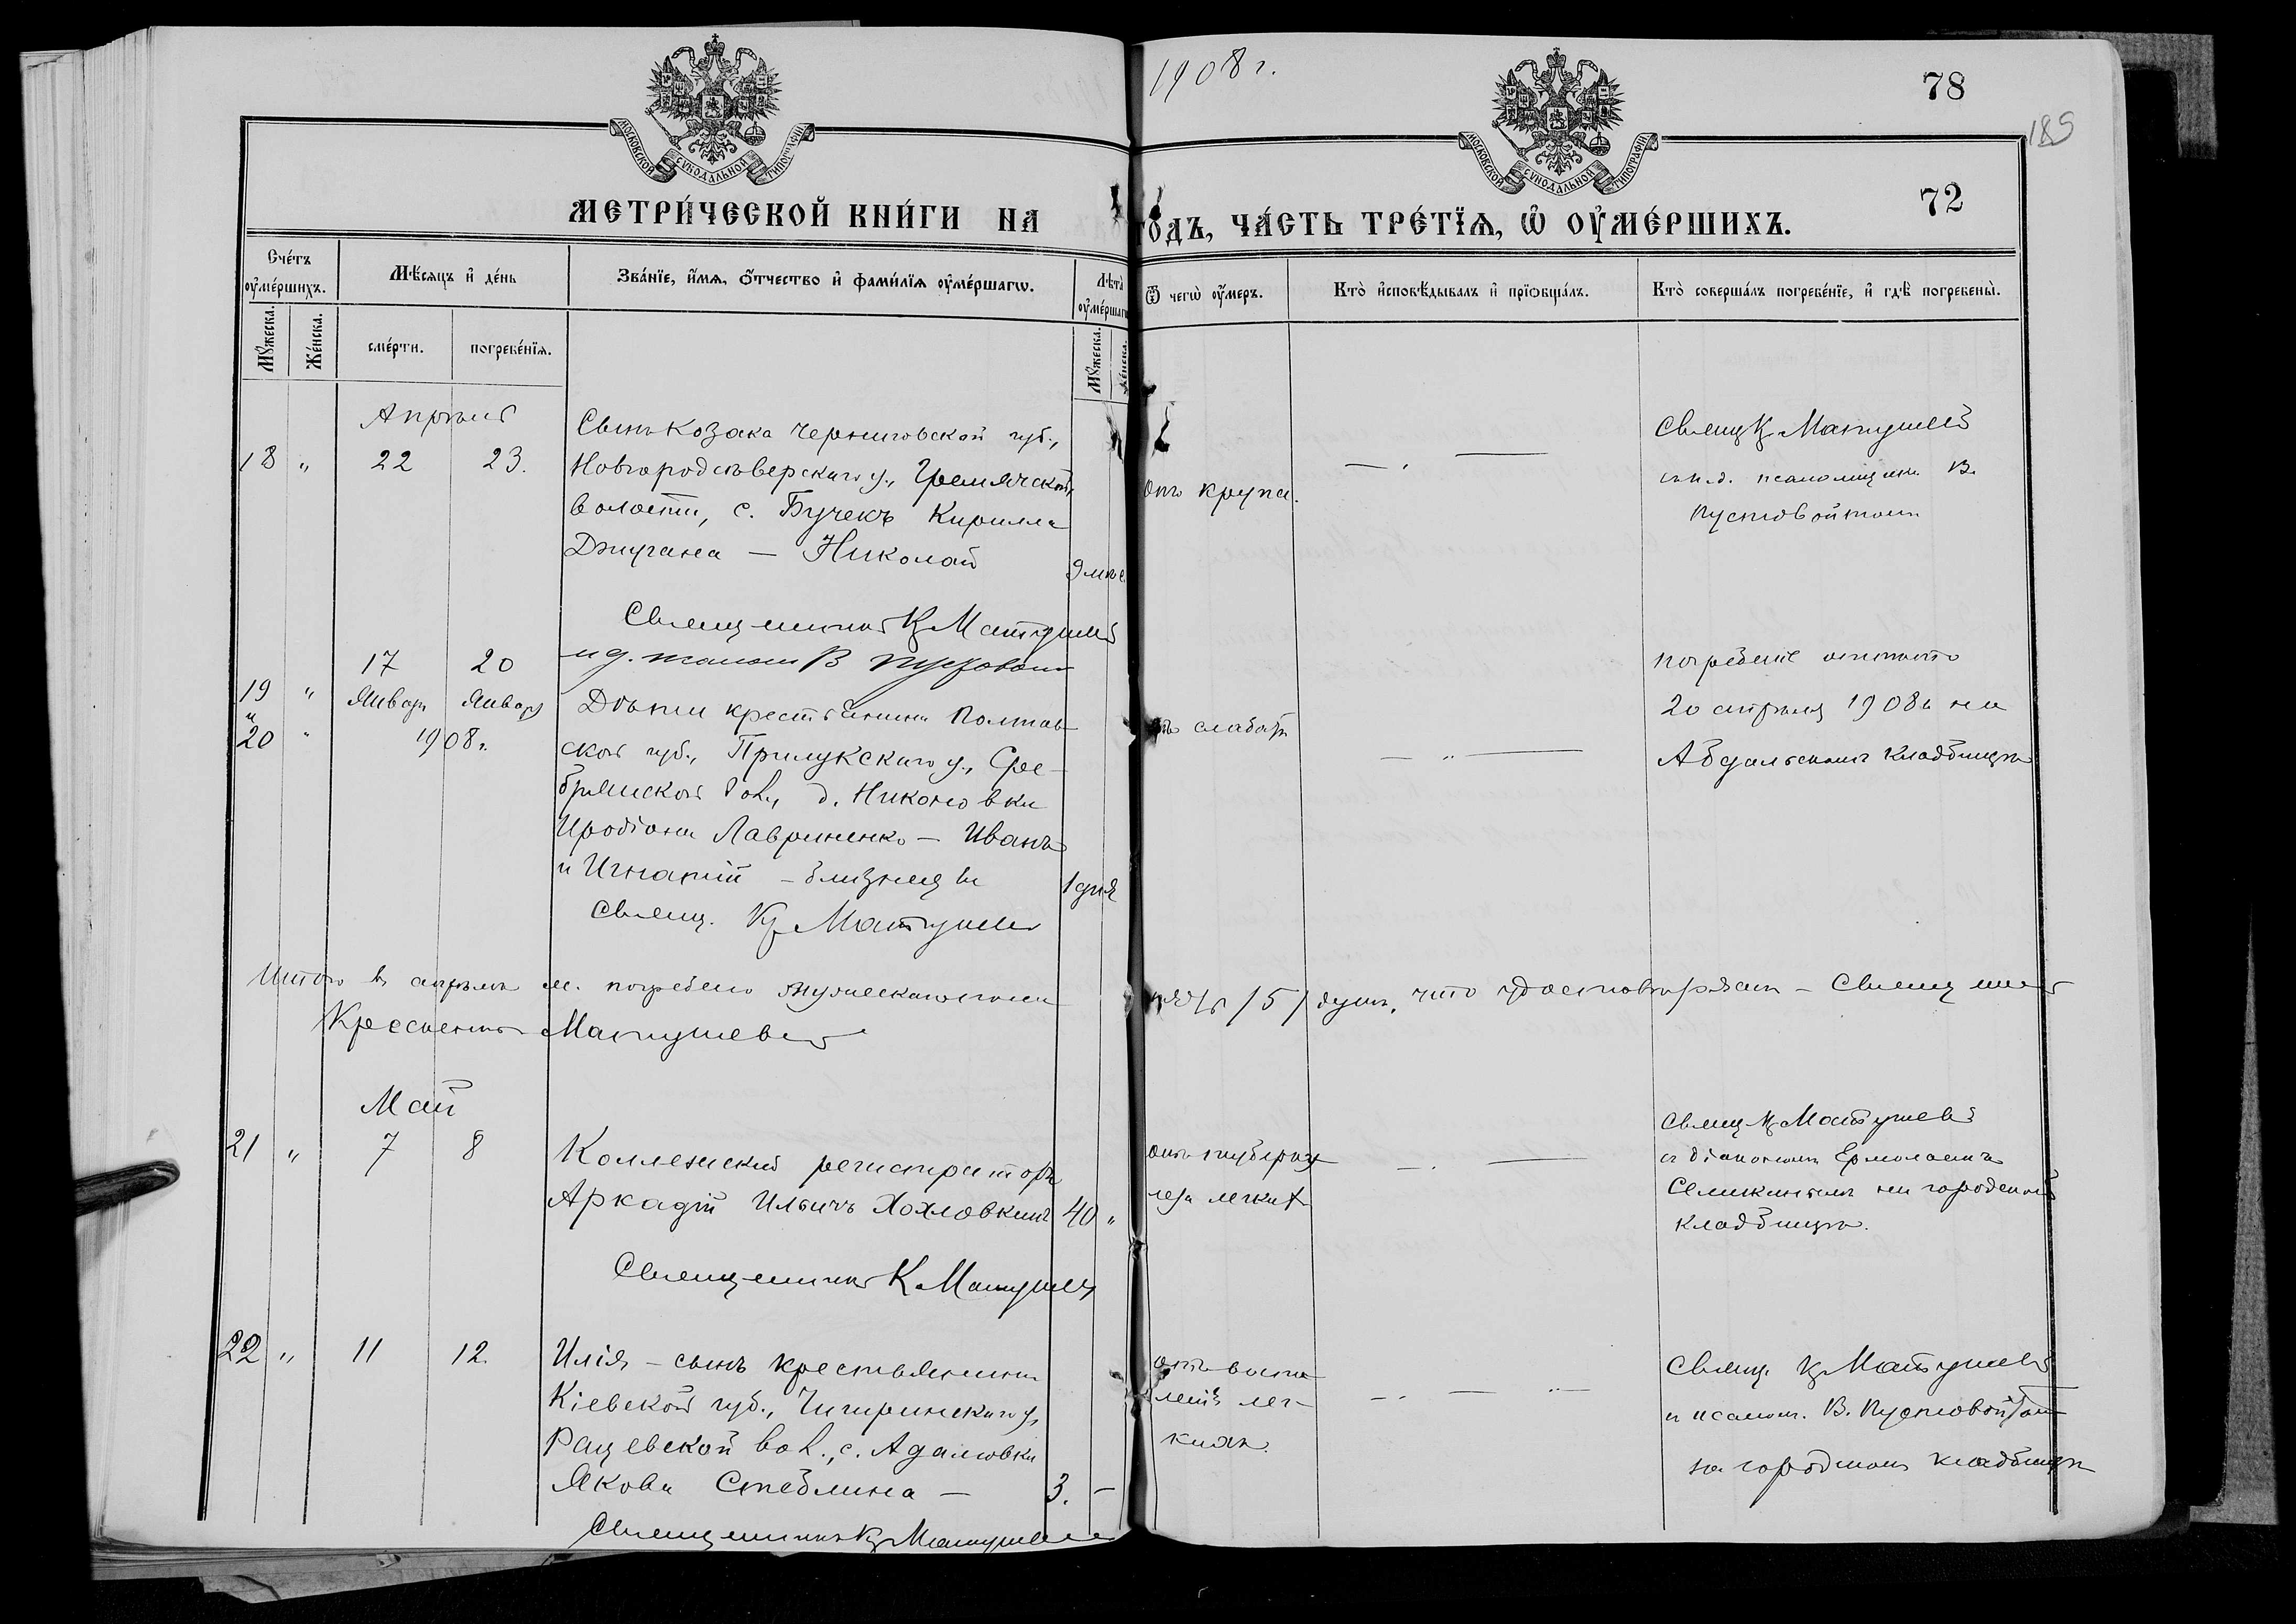 1908 г.
78
189
72
МОСКОВСКОЙ СѴНОДАЛЬНОЙ ТИПОГРАФІИ
МОСКОВСКОЙ СѴНОДАЛЬНОЙ ТИПОГРАФІИ
МЕТРИ́ЧЕСКОЙ КНИ́ГИ НА
ГОДЪ, ЧА́СТЬ ТРЕ́ТЇѦ, Ѡ҆ ОУ҆МЕ́РШИХЪ.
Сче́тъ оу҆ме́ршихъ.
Мѣ́сяцъ и҆ де́нь
Зва́нїе, и҆́мѧ, ѻ҆́тчество и҆ фами́лїѧ оу҆ме́ршагѡ.
Лѣта̀ оу҆ме́ршагѡ
Ѿ чегѡ̀ оу҆́меръ.
Кто̀ и҆сповѣ́дывалъ и҆ прїѡбща́лъ.
Кто̀ соверша́лъ погребе́нїе, и҆ гдѣ̀ погребены̀.
Мꙋ́жеска.
Же́нска.
сме́рти.
погребе́нїѧ.
Мꙋ́жеска.
Же́нска.
Апрѣль
18 " 22 23.
Сынъ козака Черниговской губ.,
Новгородсѣверскаго у., Гремячской
волости, с. Бучекъ Кирилла
Джугана — Николай
9 мѣс
отъ крупа.
Свящ К Матушевъ
и. д. псаломщика В.
Пустовойтомъ
Священникъ К Матушев
и д. псалом В Пустовойт
19 " 17 Январ 20 Января
и
20 " 1908 г.
Дѣти крестьянина Полтав
ской губ., Прилукскаго у., Сре-
брянской вол., д. Никоновки
Иродіона Лавриненко — Иванъ
и Игнатій — близнецы
1 дня
отъ слабос
погребеніе отпѣто
20 апрѣля 1908 г на
Абдальскомъ кладбищѣ
Свящ. К Матушев
Итого въ апрѣлѣ м. погребено мужескаго пола
пять /5/ душъ, что удостовѣряемъ — Священник
Крескентъ Матушевъ
Май
21 " 7 8
Коллежскій регистраторъ
Аркадій Ильичъ Хохловкинъ
40 "
отъ туберку
леза легких
Свящ К Матушевъ
съ діакономъ Ермолаемъ
Селихинымъ на городском
кладбищѣ.
Священникъ К Матушев
22 " 11 12.
Илія — сынъ крестьянина
Кіевской губ., Чигиринскаго у,
Рацевской вол., с. Адамовки
Якова Стеблина —
3. —
отъ воспа
ленія лег-
кихъ.
Свящ. К Матушевъ
и псалом. В. Пустовойтом
на городском кладбищѣ
Священникъ К Матушев